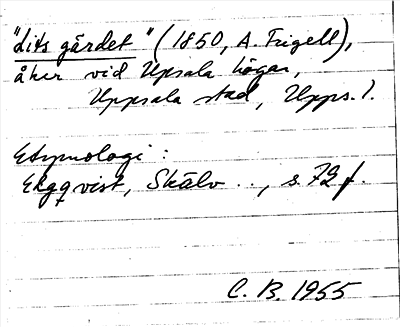 "Lits gärdet" (1850, A. Frigell),
åker vid Upsala högar,
Uppsala stad, Upps. l.
Etymologi:
Ekgqvist, Skälv .., s. 72 f.
C. B. 1955